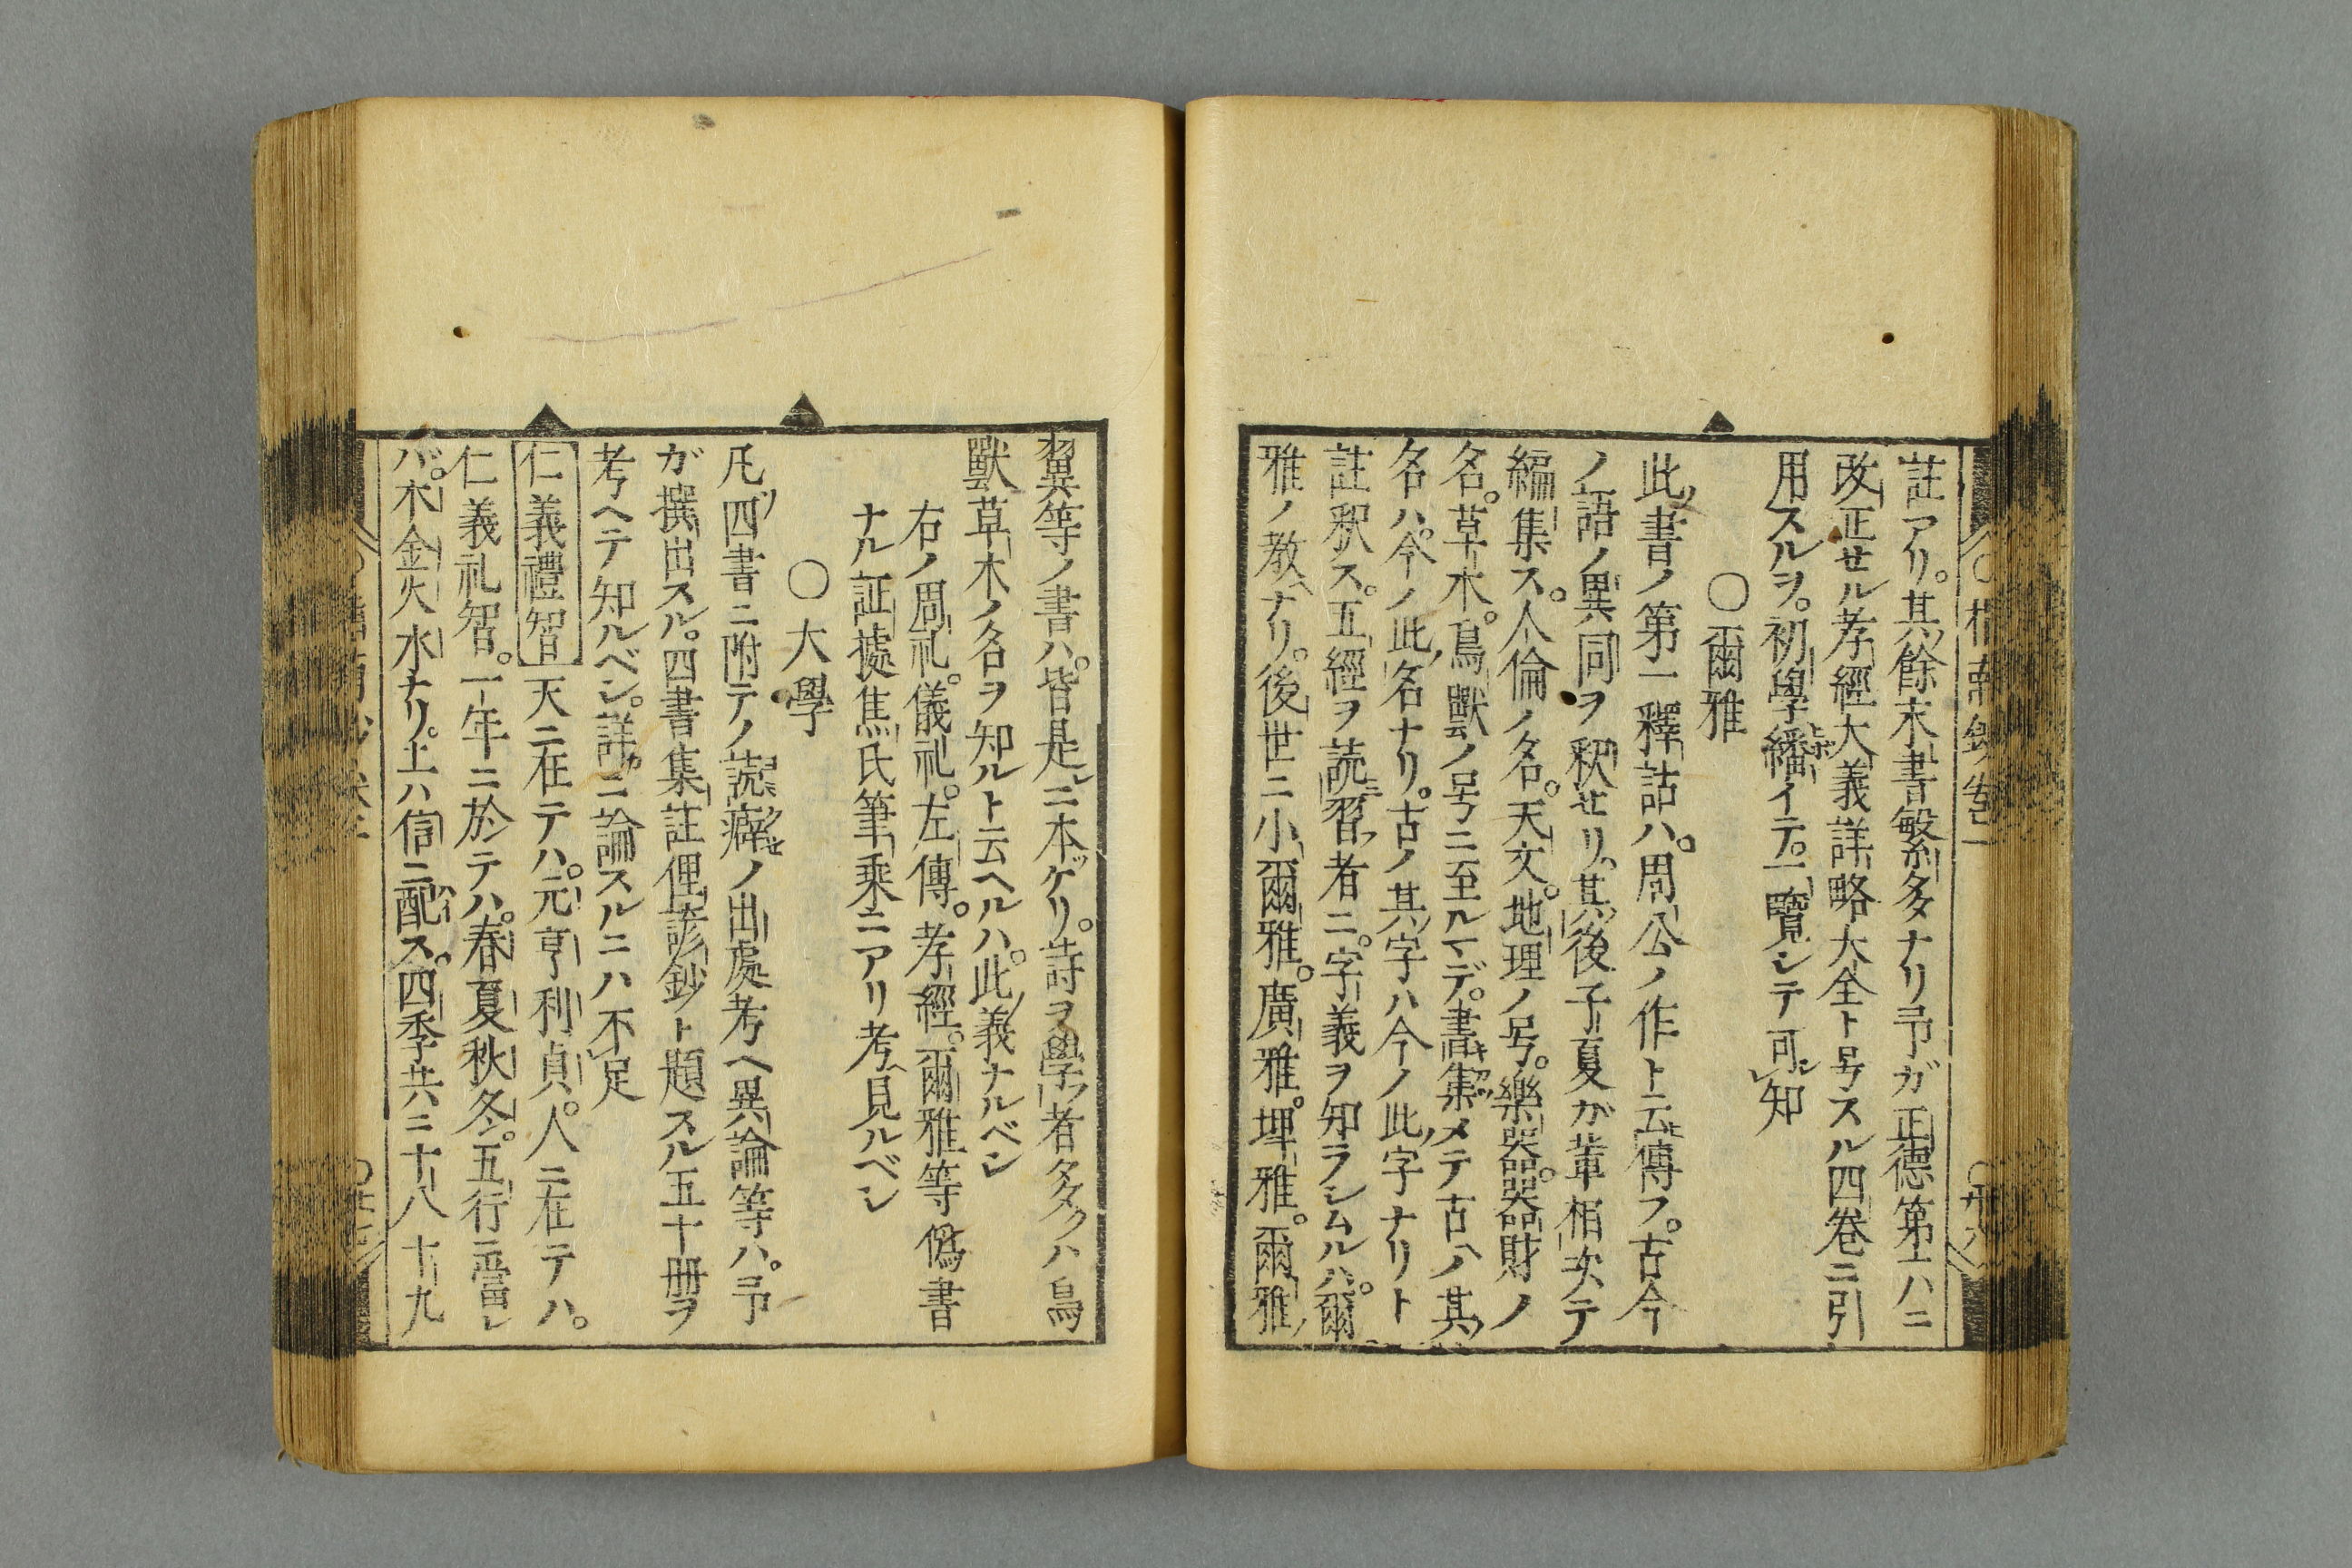 註アリ。其餘末書繁多ナリ予ガ正德第六ハニ
改正セル孝經大義詳略大全ト号スル四巻ニ引
用スルヲ。初學繙イテ。一覽シテ可知
〇爾雅
此書ノ第一釋詁ハ。周公ノ作ト云傳フ。古今
ノ語ノ異同ヲ釈セリ。其後子夏ガ輩相次テ
編集ス。人倫ノ名。天文。地理ノ号。樂器。器財ノ
名。草木。鳥獸ノ号ニ至ルマデ。書集メテ古ヘノ其
名ハ。今ノ此名ナリ。古ノ其字ハ今ノ此字ナリト
註釈ス。五經ヲ読習者ニ。字義ヲ知ラシムルハ。爾
雅ノ教ナリ。後世ニ小爾雅。廣雅。埤雅。爾雅
翼等ノ書ハ。皆是ニ本ヅケリ。詩ヲ學者多クハ鳥
獸草木ノ名ヲ知ルト云ヘルハ。此義ナルベシ
右ノ周礼。儀礼。左傳。孝經。爾雅等偽書
ナル証據焦氏筆乘ニアリ考見ルベシ
〇大學
凡四書ニ附テノ読癖ノ出處考ヘ異論等ハ。予
ガ撰出スル。四書集註俚諺鈔ト題スル五十冊ヲ
考ヘテ知ルベシ。詳ニ論スルニハ不足
仁義禮智 天ニ在テハ。元亨利貞。人ニ在テハ。
仁義礼智。一年ニ於テハ。春夏秋冬。五行ニ當レ
バ。木金火水ナリ。土ハ信ニ配ス。四季共ニ十八十九